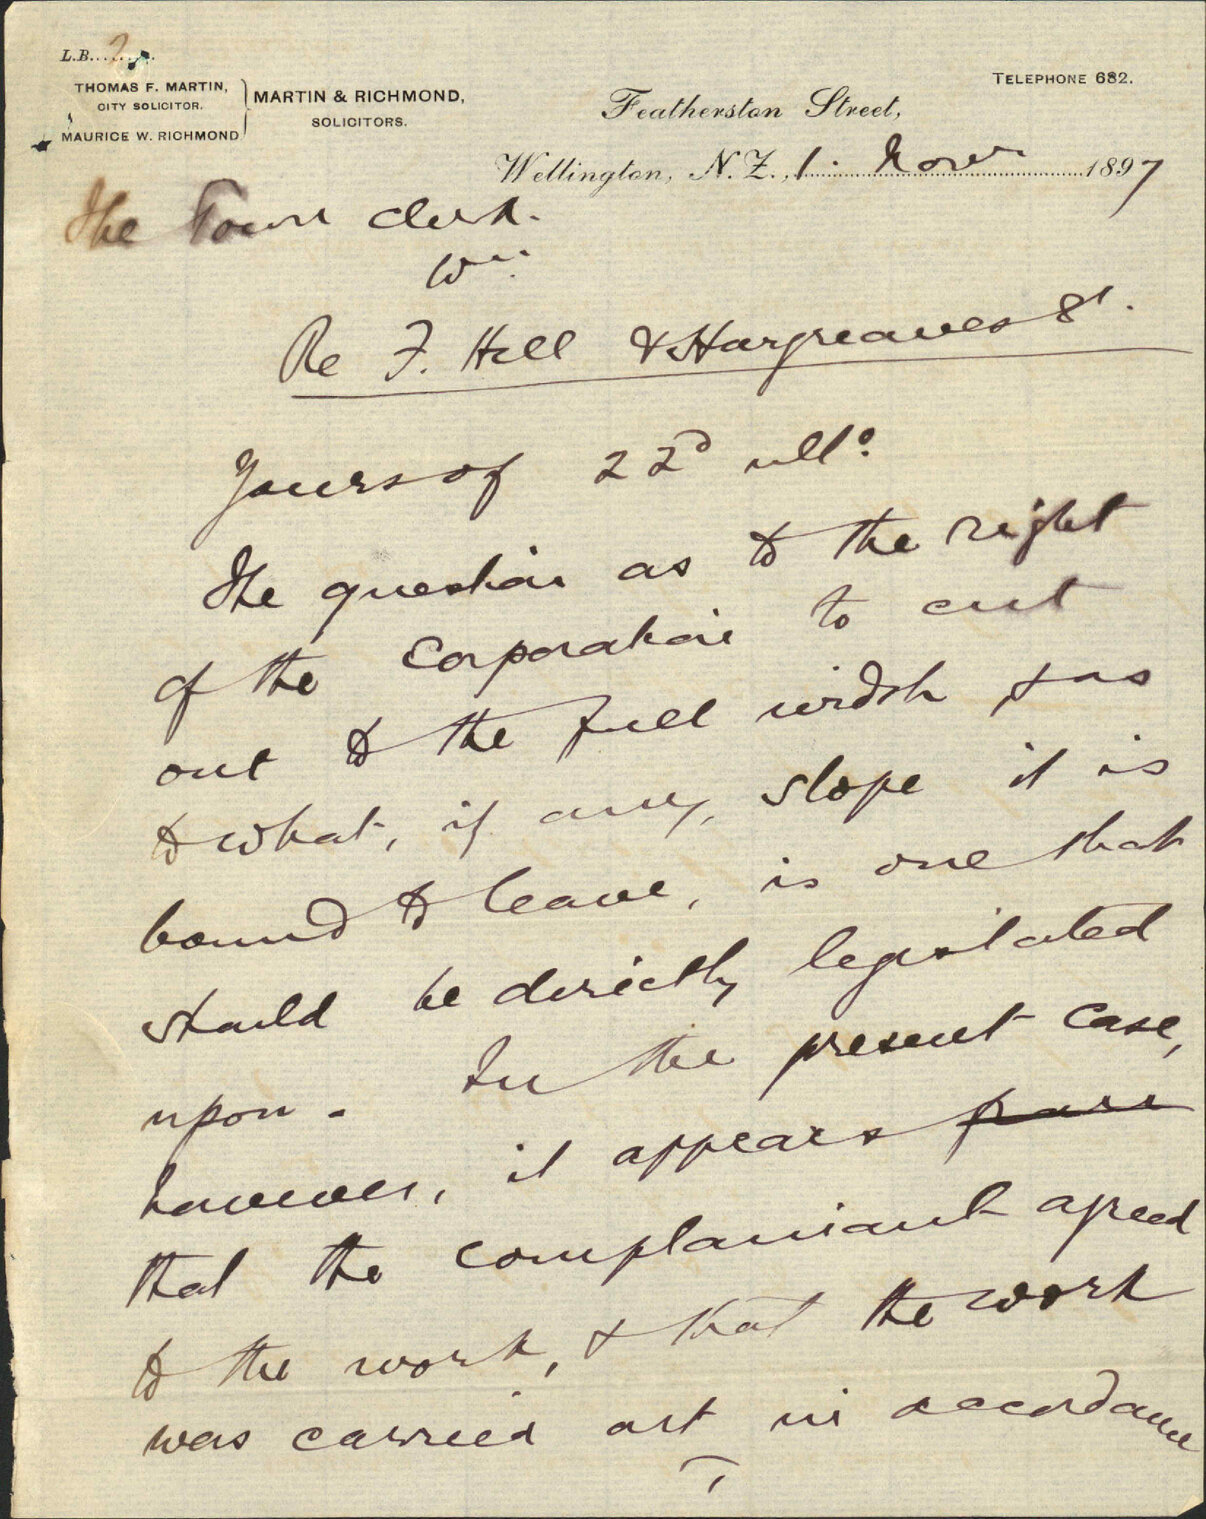 L.B. 2
THOMAS F. MARTIN,
CITY SOLICITOR.
MAURICE W. RICHMOND
MARTIN & RICHMOND,
SOLICITORS.
TELEPHONE 682.
Featherston Street,
Wellington, N.Z., 1. Novr 1897
The Town Clerk.
Wn:
Re F. Hill & Hargreaves St.
Yours of 22d ullo.
The question as to the right
of the Corporation to cut
out to the full width & as
to what, if any, slope it is
bound to leave, is one that
should be directly legislated
upon. In the present case,
however, it appears
that the complainant agreed
to the work, & that the work
was carried out in accordance